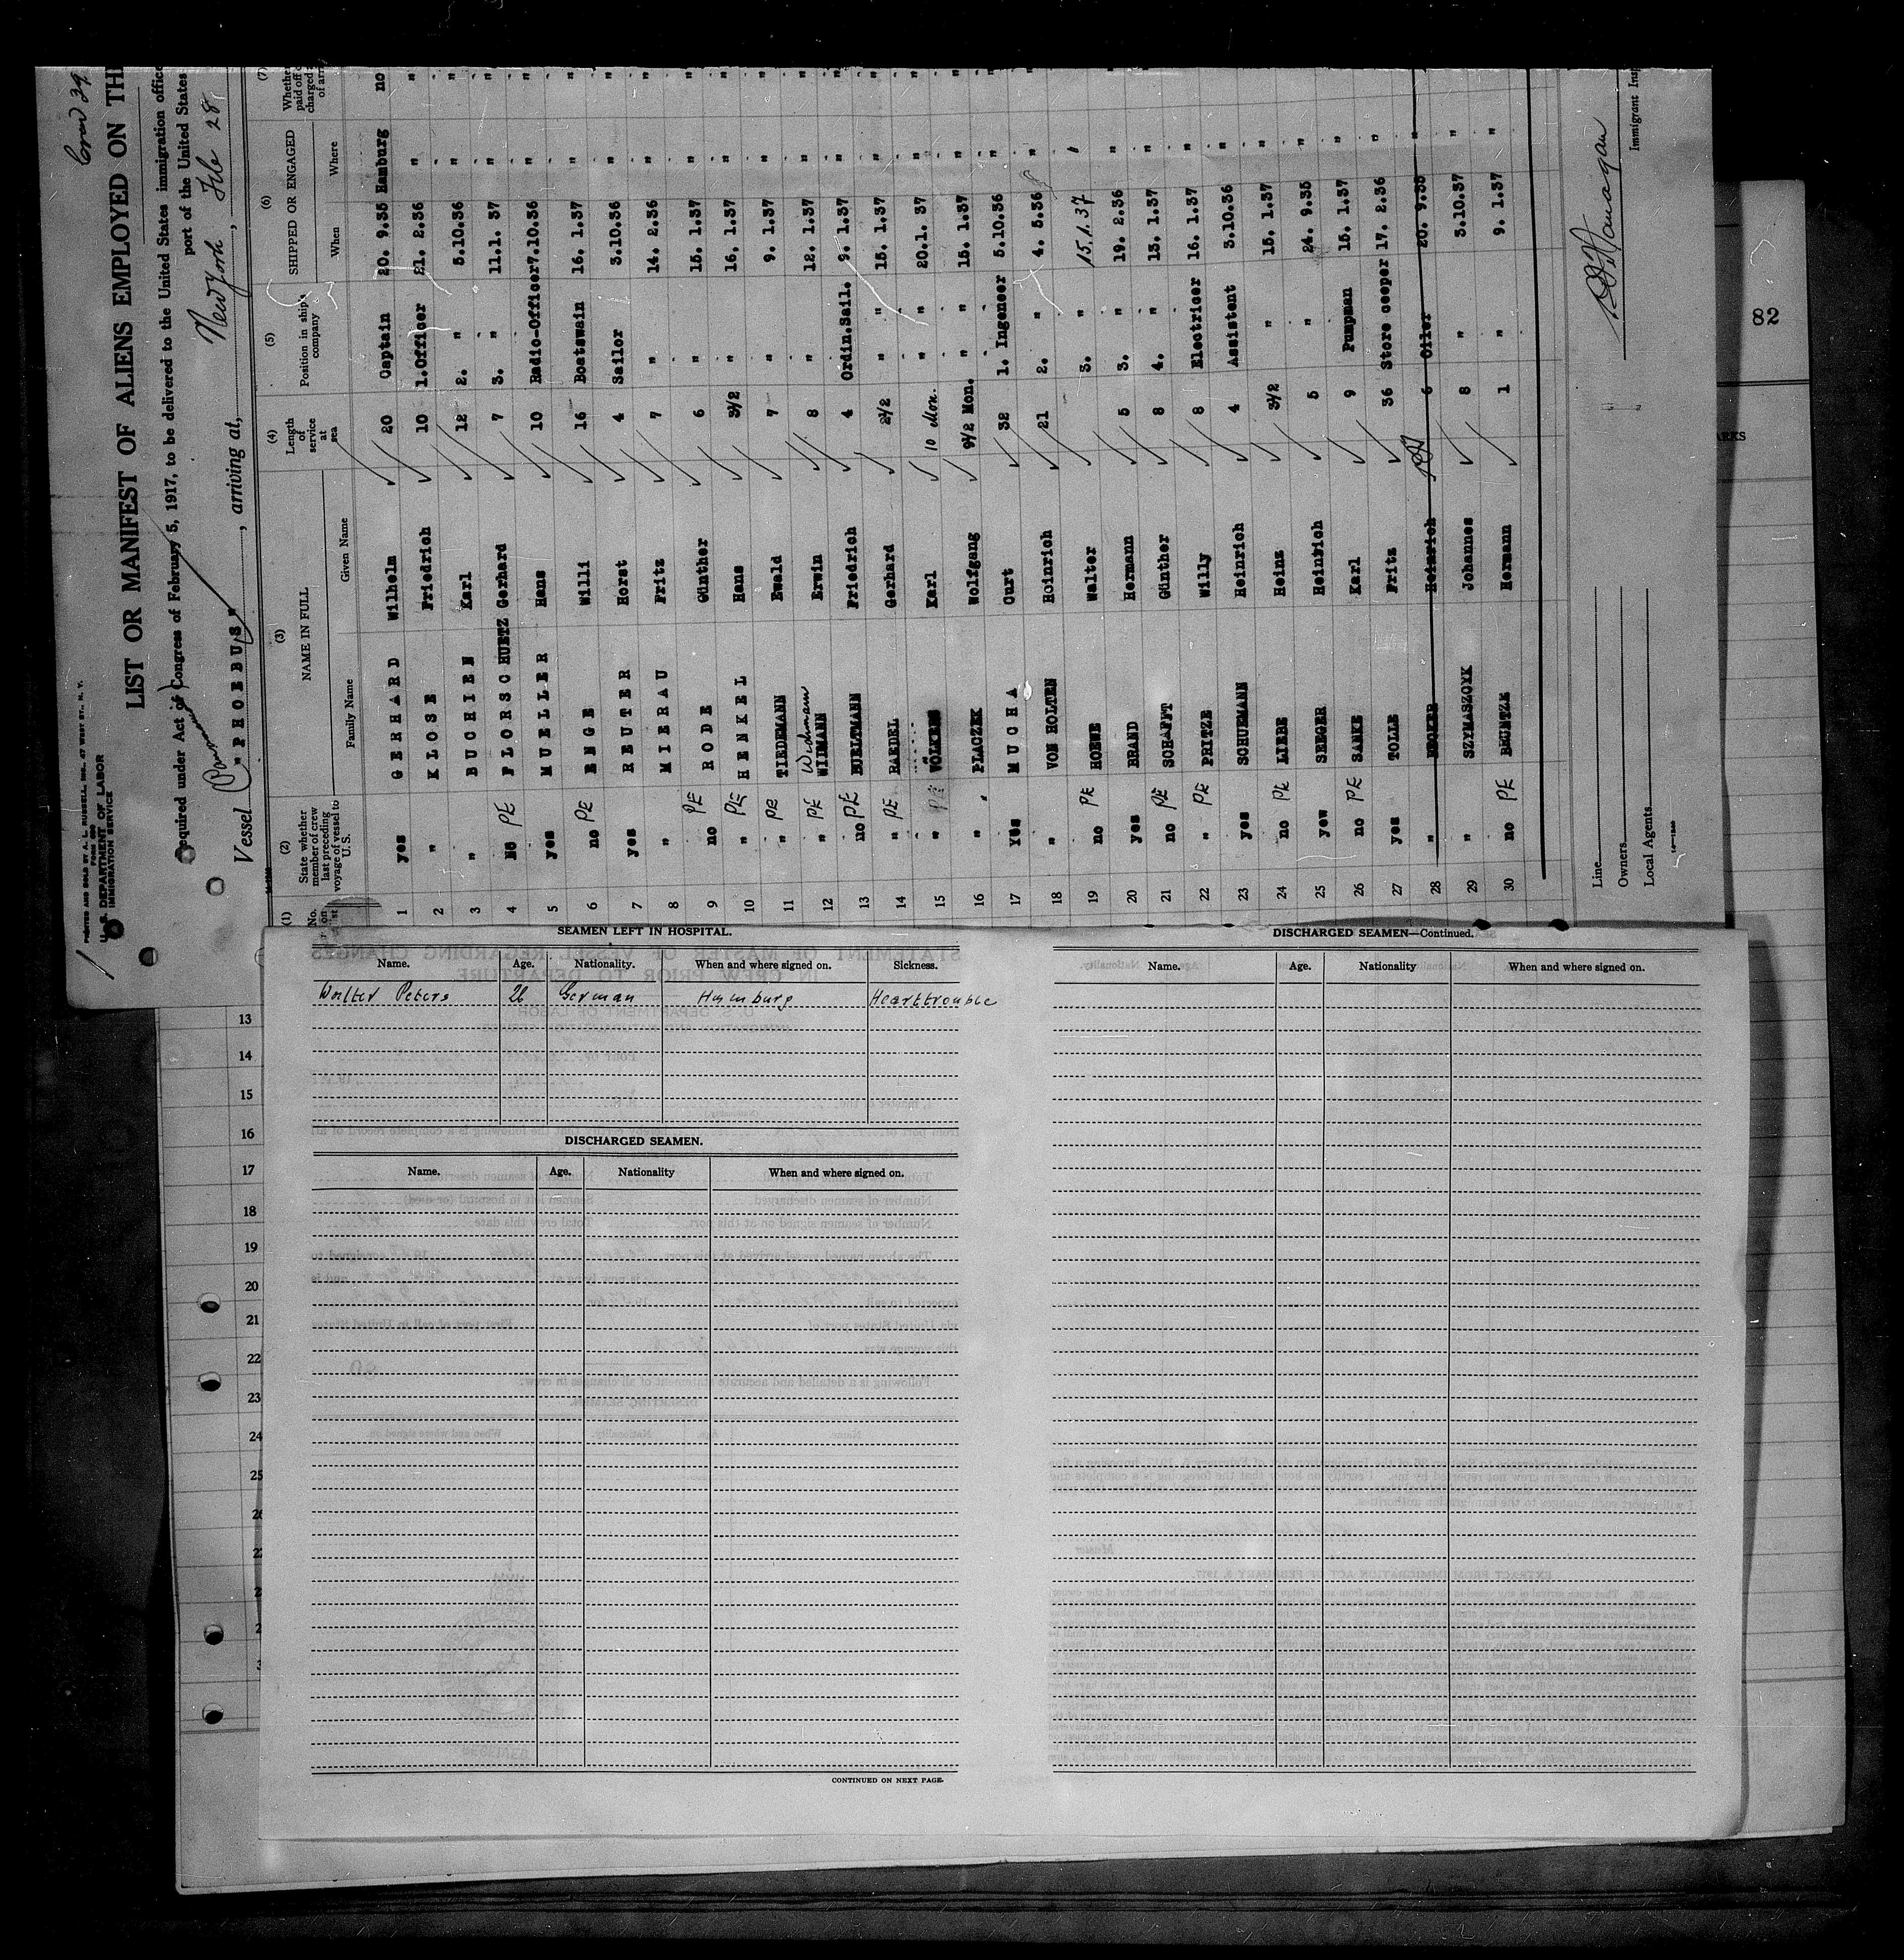 PRINTED AND SOLD BY A. L. RUSSELL, INC., 47 WEST ST., N. Y.
FORM 680
U. S. DEPARTMENT OF LABOR
IMMIGRATION SERVICE
Crew 39
LIST OR MANIFEST OF ALIENS EMPLOYED ON TH
Required under Act of Congress of February 5, 1917, to be delivered to the United States immigration office
port of the United States
Vessel "PHOEBUS", arriving at, New York Feb 28,
(1) (2) (3) (4) (5) (6) (7)
No. on State whether member of crew last preceding voyage of vessel to U. S. NAME IN FULL Family Name Given Name Length of service at sea Position in ship's company SHIPPED OR ENGAGED When Where Whether paid off charged of arr
1 yes GERHARD Wilhelm 20 Captain 20. 9.35 Hamburg no
2 " KLOSE Friedrich 10 1.Officer 21. 2.36 " "
3 " BUCHIEN Karl 12 2. " 5.10.36 " "
4 No PE FLORSCHUETZ Gerhard 7 3. " 11.1. 37 " "
5 yes MUELLER Hans 10 Radio-Officer 7.10.36 " "
6 no PE ENGE Willi 16 Boatswain 16. 1.37 " "
7 yes REUTER Horst 4 Sailor 3.10.36 " "
8 " MIERAU Fritz 7 " 14. 2.36 " "
9 no PE RODE Günther 6 " 15. 1.37 " "
10 " PE HENKEL Hans 3½ " 16. 1.37 " "
11 " PE TIEDEMANN Ewald 7 " 9. 1.37 " "
12 " PE Widmann WIDMANN Erwin 8 " 12. 1.37 " "
13 no PE BUELTMANN Friedrich 4 Ordin.Sail. 9. 1.37 " "
14 " PE RAEDEL Gerhard 2½ " 15. 1.37 " "
15 " PE VÖLKERS Karl 10 Mon. " 20.1. 37 " "
16 " PLACZEK Wolfgang 9½ Mon. " 15. 1.37 " "
17 Yes MUCHA Curt 32 1. Ingeneer 5.10.36 " "
18 " VON HOLTEN Hoinrich 21 2. " 4. 5.36 " "
19 no PE HOEWE Walter 3. " 15.1.37 " "
20 yes BRAND Hermann 5 3. " 19. 2.36 " "
21 no PE SCHAPFT Günther 8 4. " 15. 1.37 " "
22 " PE PRITZE Willy 8 Electricer 16. 1.37 " "
23 yes SCHUEMANN Heinrich 4 Assistent 3.10.36 " "
24 no PE LIEBE Heinz 3½ " 15. 1.37 " "
25 yew SEEGER Heinrich 5 " 24. 9.35 " "
26 no PE SANKE Karl 9 Pumpman 15. 1.37 " "
27 yes TOLLE Fritz 36 Store ceeper 17. 2.36 " "
28 " Heinrich 6 Oiler 20. 9.35 " "
29 " SZYMASZCYK Johannes 8 " 3.10.37 " "
30 no PE BRUNTZK Hermann 1 " 9. 1.37 " "
Line
Owners
Local Agents
Immigrant Insp
82
ARKS
SEAMEN LEFT IN HOSPITAL.
Name. Age. Nationality. When and where signed on. Sickness.
Walter Peters 26 German Hamburg Hearttrouble
DISCHARGED SEAMEN.
Name. Age. Nationality When and where signed on.
CONTINUED ON NEXT PAGE.
DISCHARGED SEAMEN—Continued.
Name. Age. Nationality When and where signed on.
13
14
15
16
17
18
19
20
21
22
23
24
25